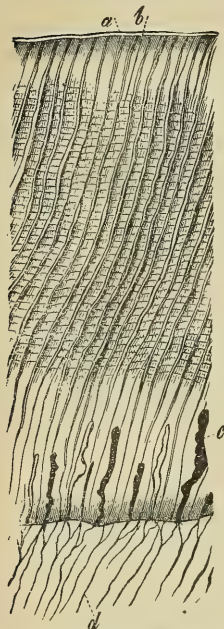 a b
c
d